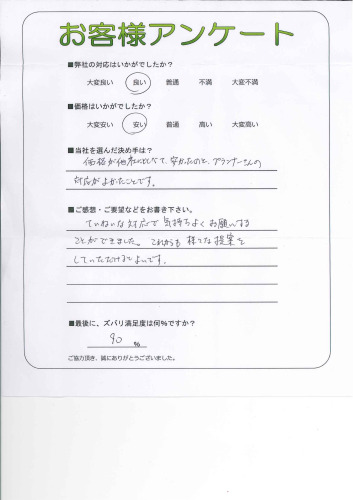 お客様アンケート
■弊社の対応はいかがでしたか?
大変良い 良い 普通 不満 大変不満
■価格はいかがでしたか?
大変安い 安い 普通 高い 大変高い
■当社を選んだ決め手は?
価格が他社とくらべて、安かったのと、プランナーさんの
対応がよかったことです。
■ご感想・ご要望などをお書き下さい。
ていねいな対応で気持ちよくお願いする
ことができました。これからも様々な提案を
していただけるとよいです。
■最後に、ズバリ満足度は何%ですか?
90 %
ご協力頂き、誠にありがとうございました。